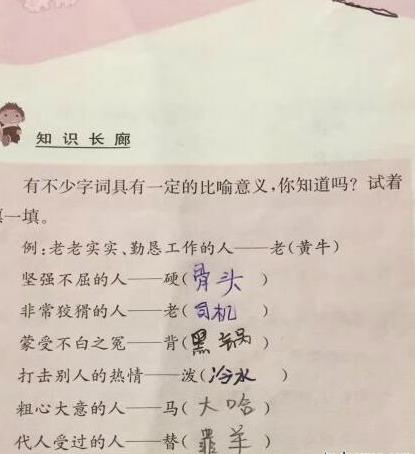 知识长廊
有不少字词具有一定的比喻意义,你知道吗? 试着
填一填。
例:老老实实、勤恳工作的人——老(黄牛)
坚强不屈的人——硬(骨头)
非常狡猾的人——老(司机)
蒙受不白之冤——背(黑锅)
打击别人的热情——泼(冷水)
粗心大意的人——马(大哈)
代人受过的人——替(罪羊)